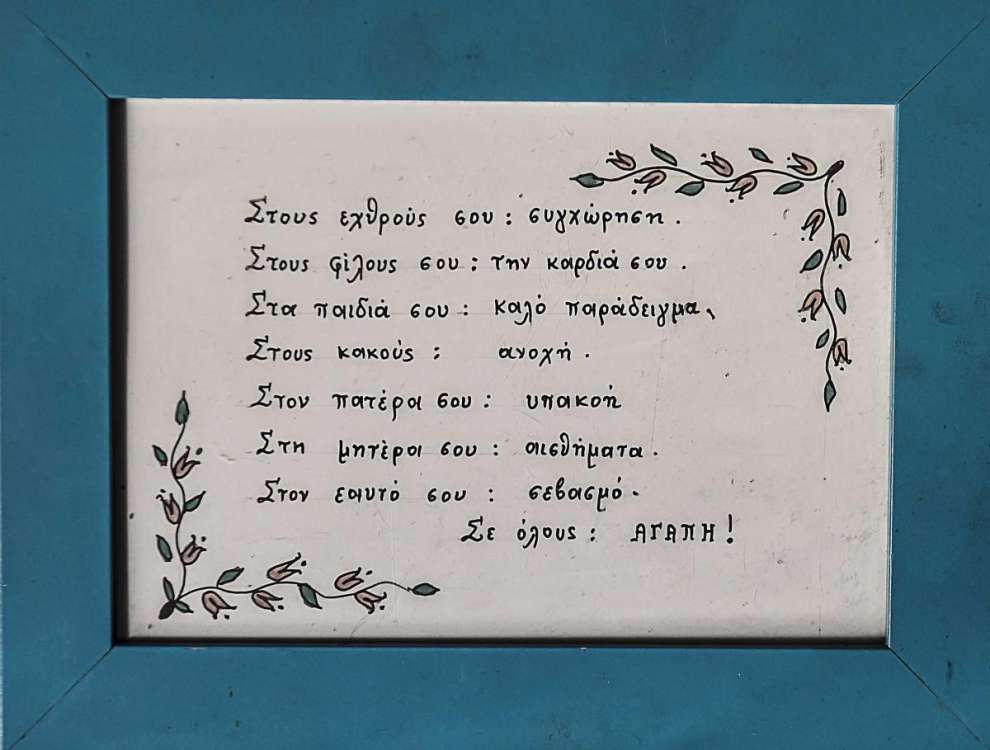 Στους εχθρούς σου : συγχώρηση .
Στους φίλους σου : την καρδιά σου .
Στα παιδιά σου : καλό παράδειγμα .
Στους κακούς : ανοχή .
Στον πατέρα σου : υπακοή
Στη μητέρα σου : αισθήματα .
Στον εαυτό σου : σεβασμό .
Σε όλους : ΑΓΑΠΗ !